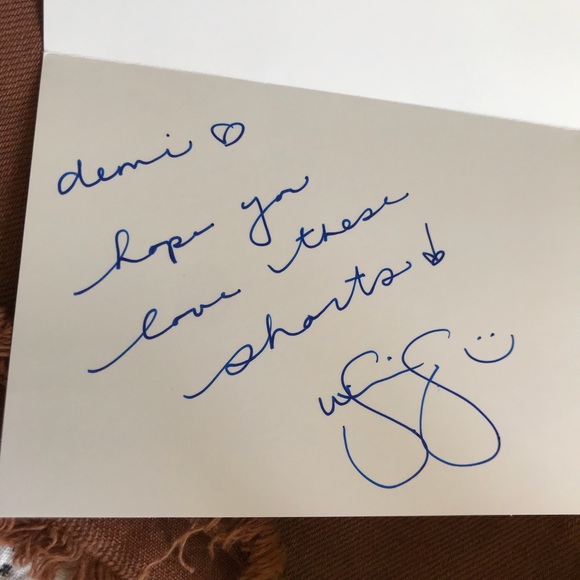 demi ♡
hope you
love these
shorts!
:)